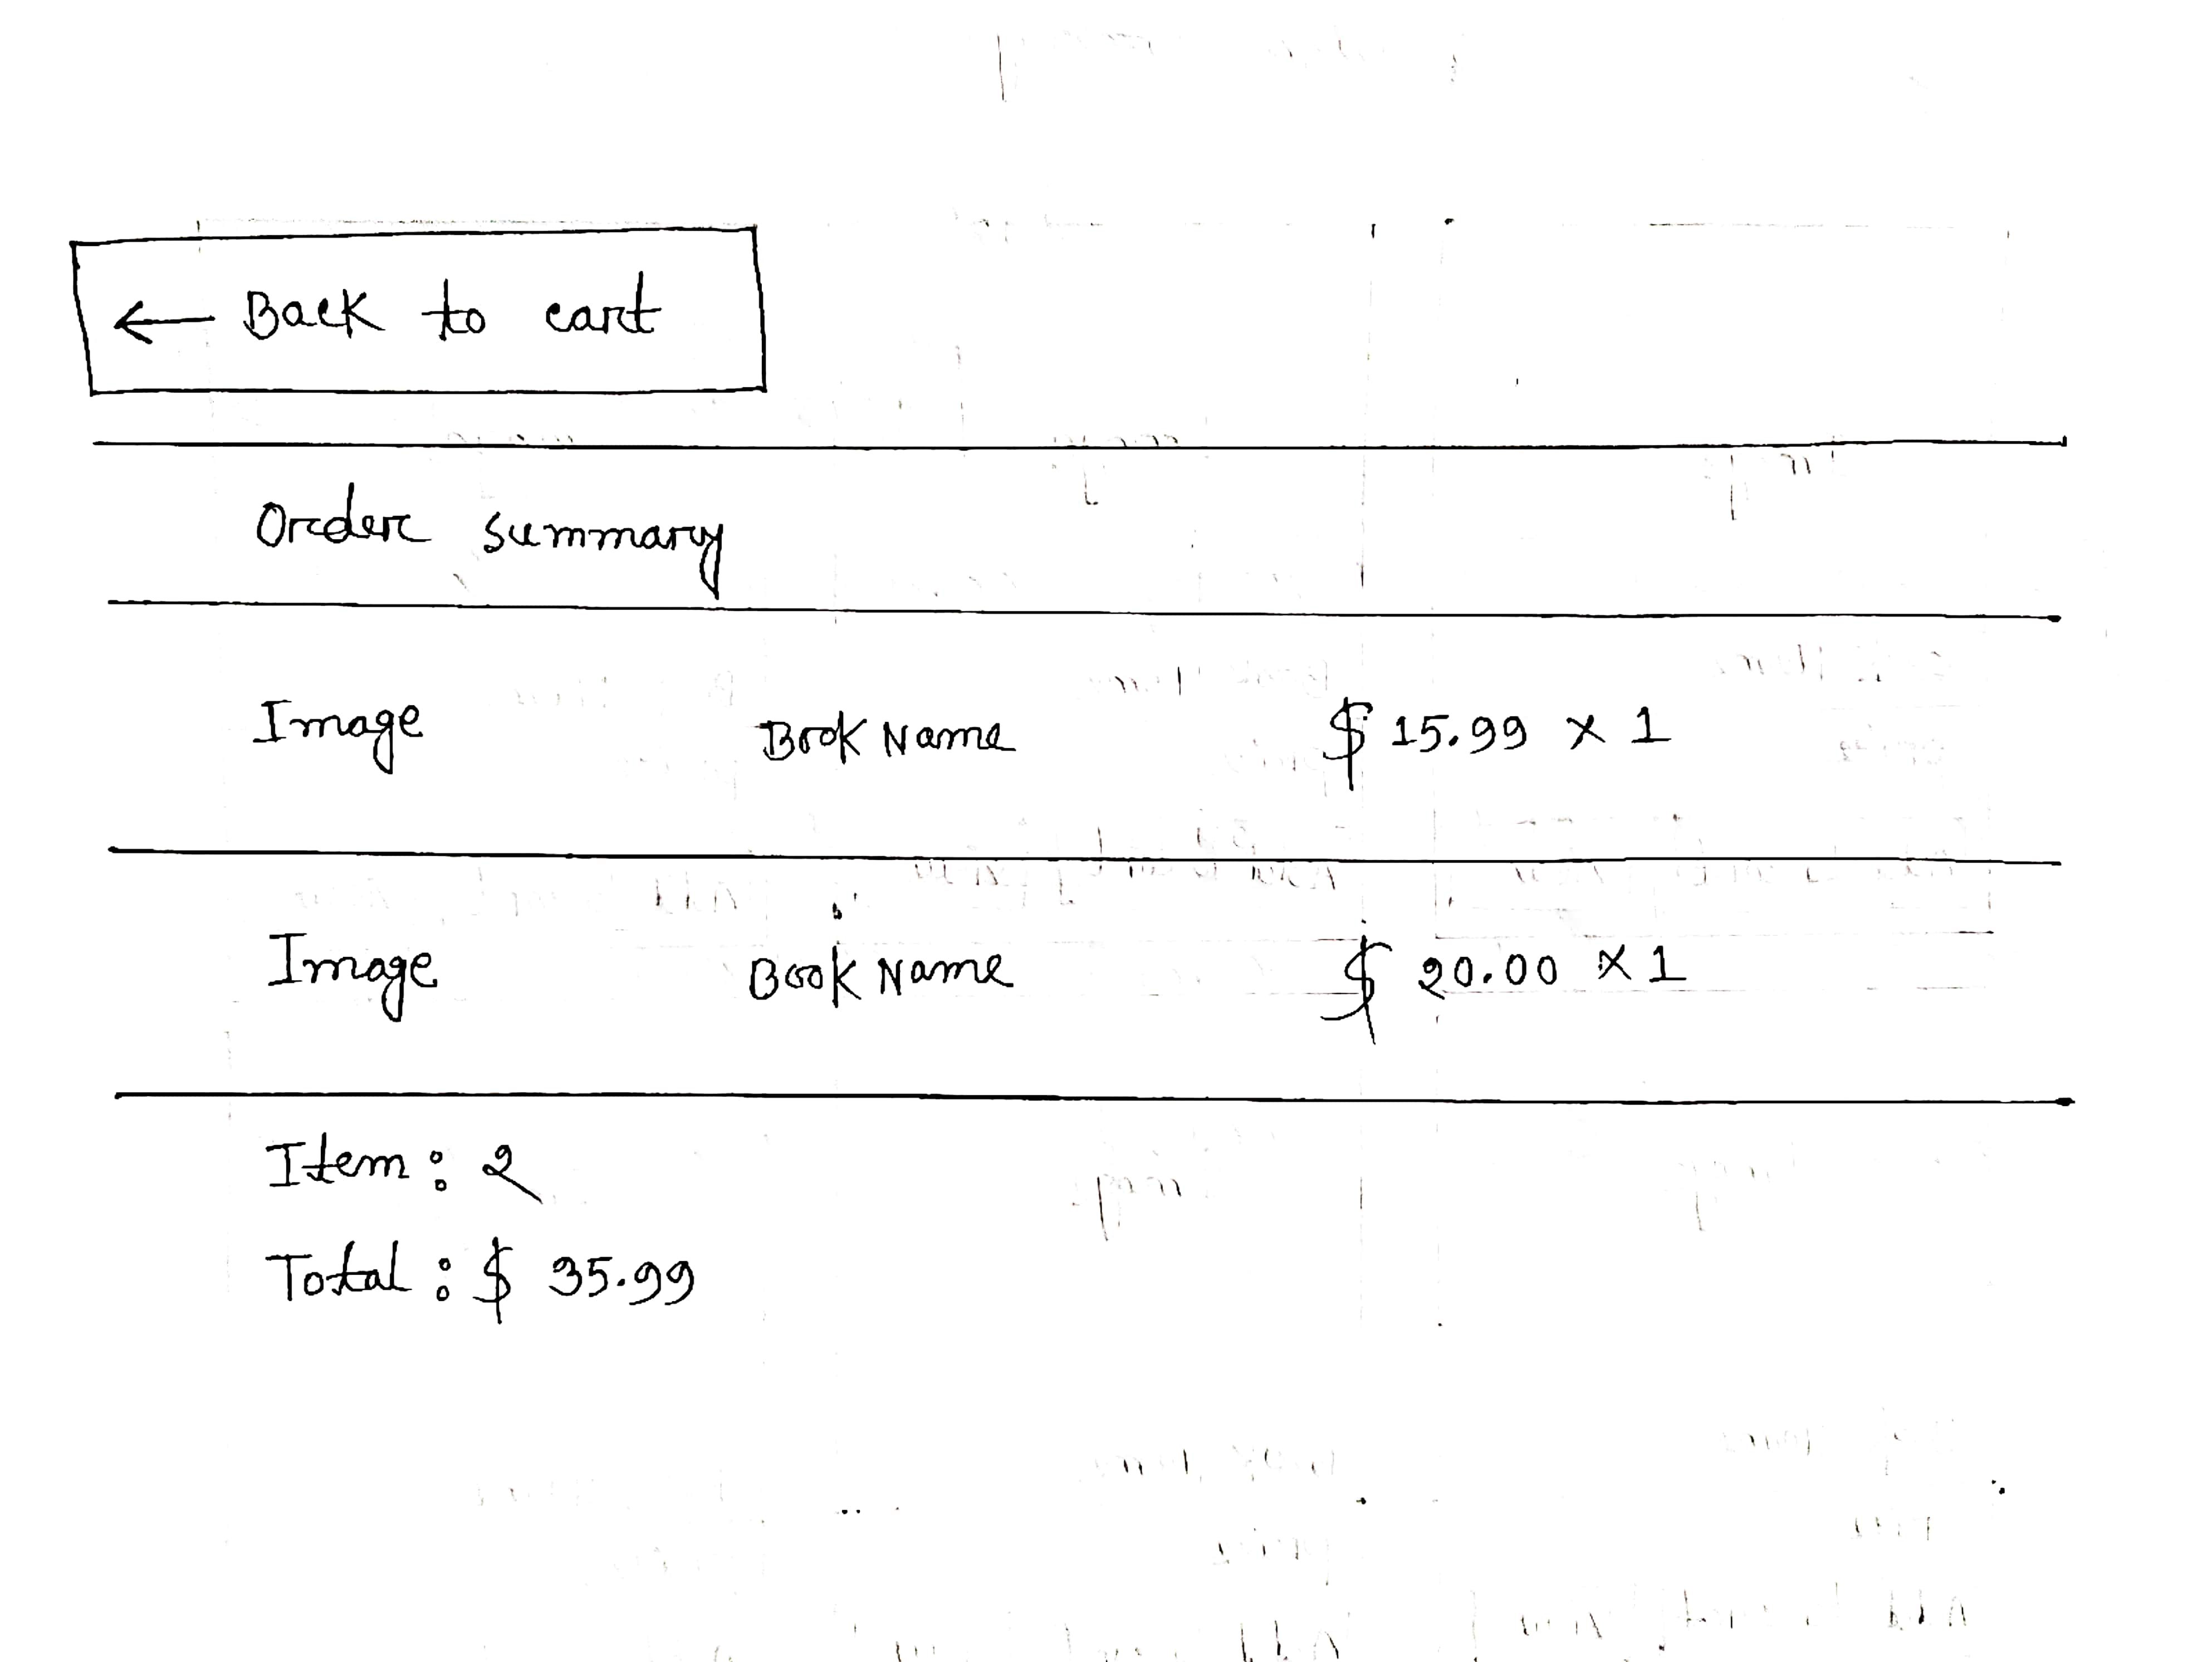 ← Back to cart
Order summary
Image Book Name $ 15.99 x 1
Image Book Name $ 20.00 x 1
Item : 2
Total : $ 35.99